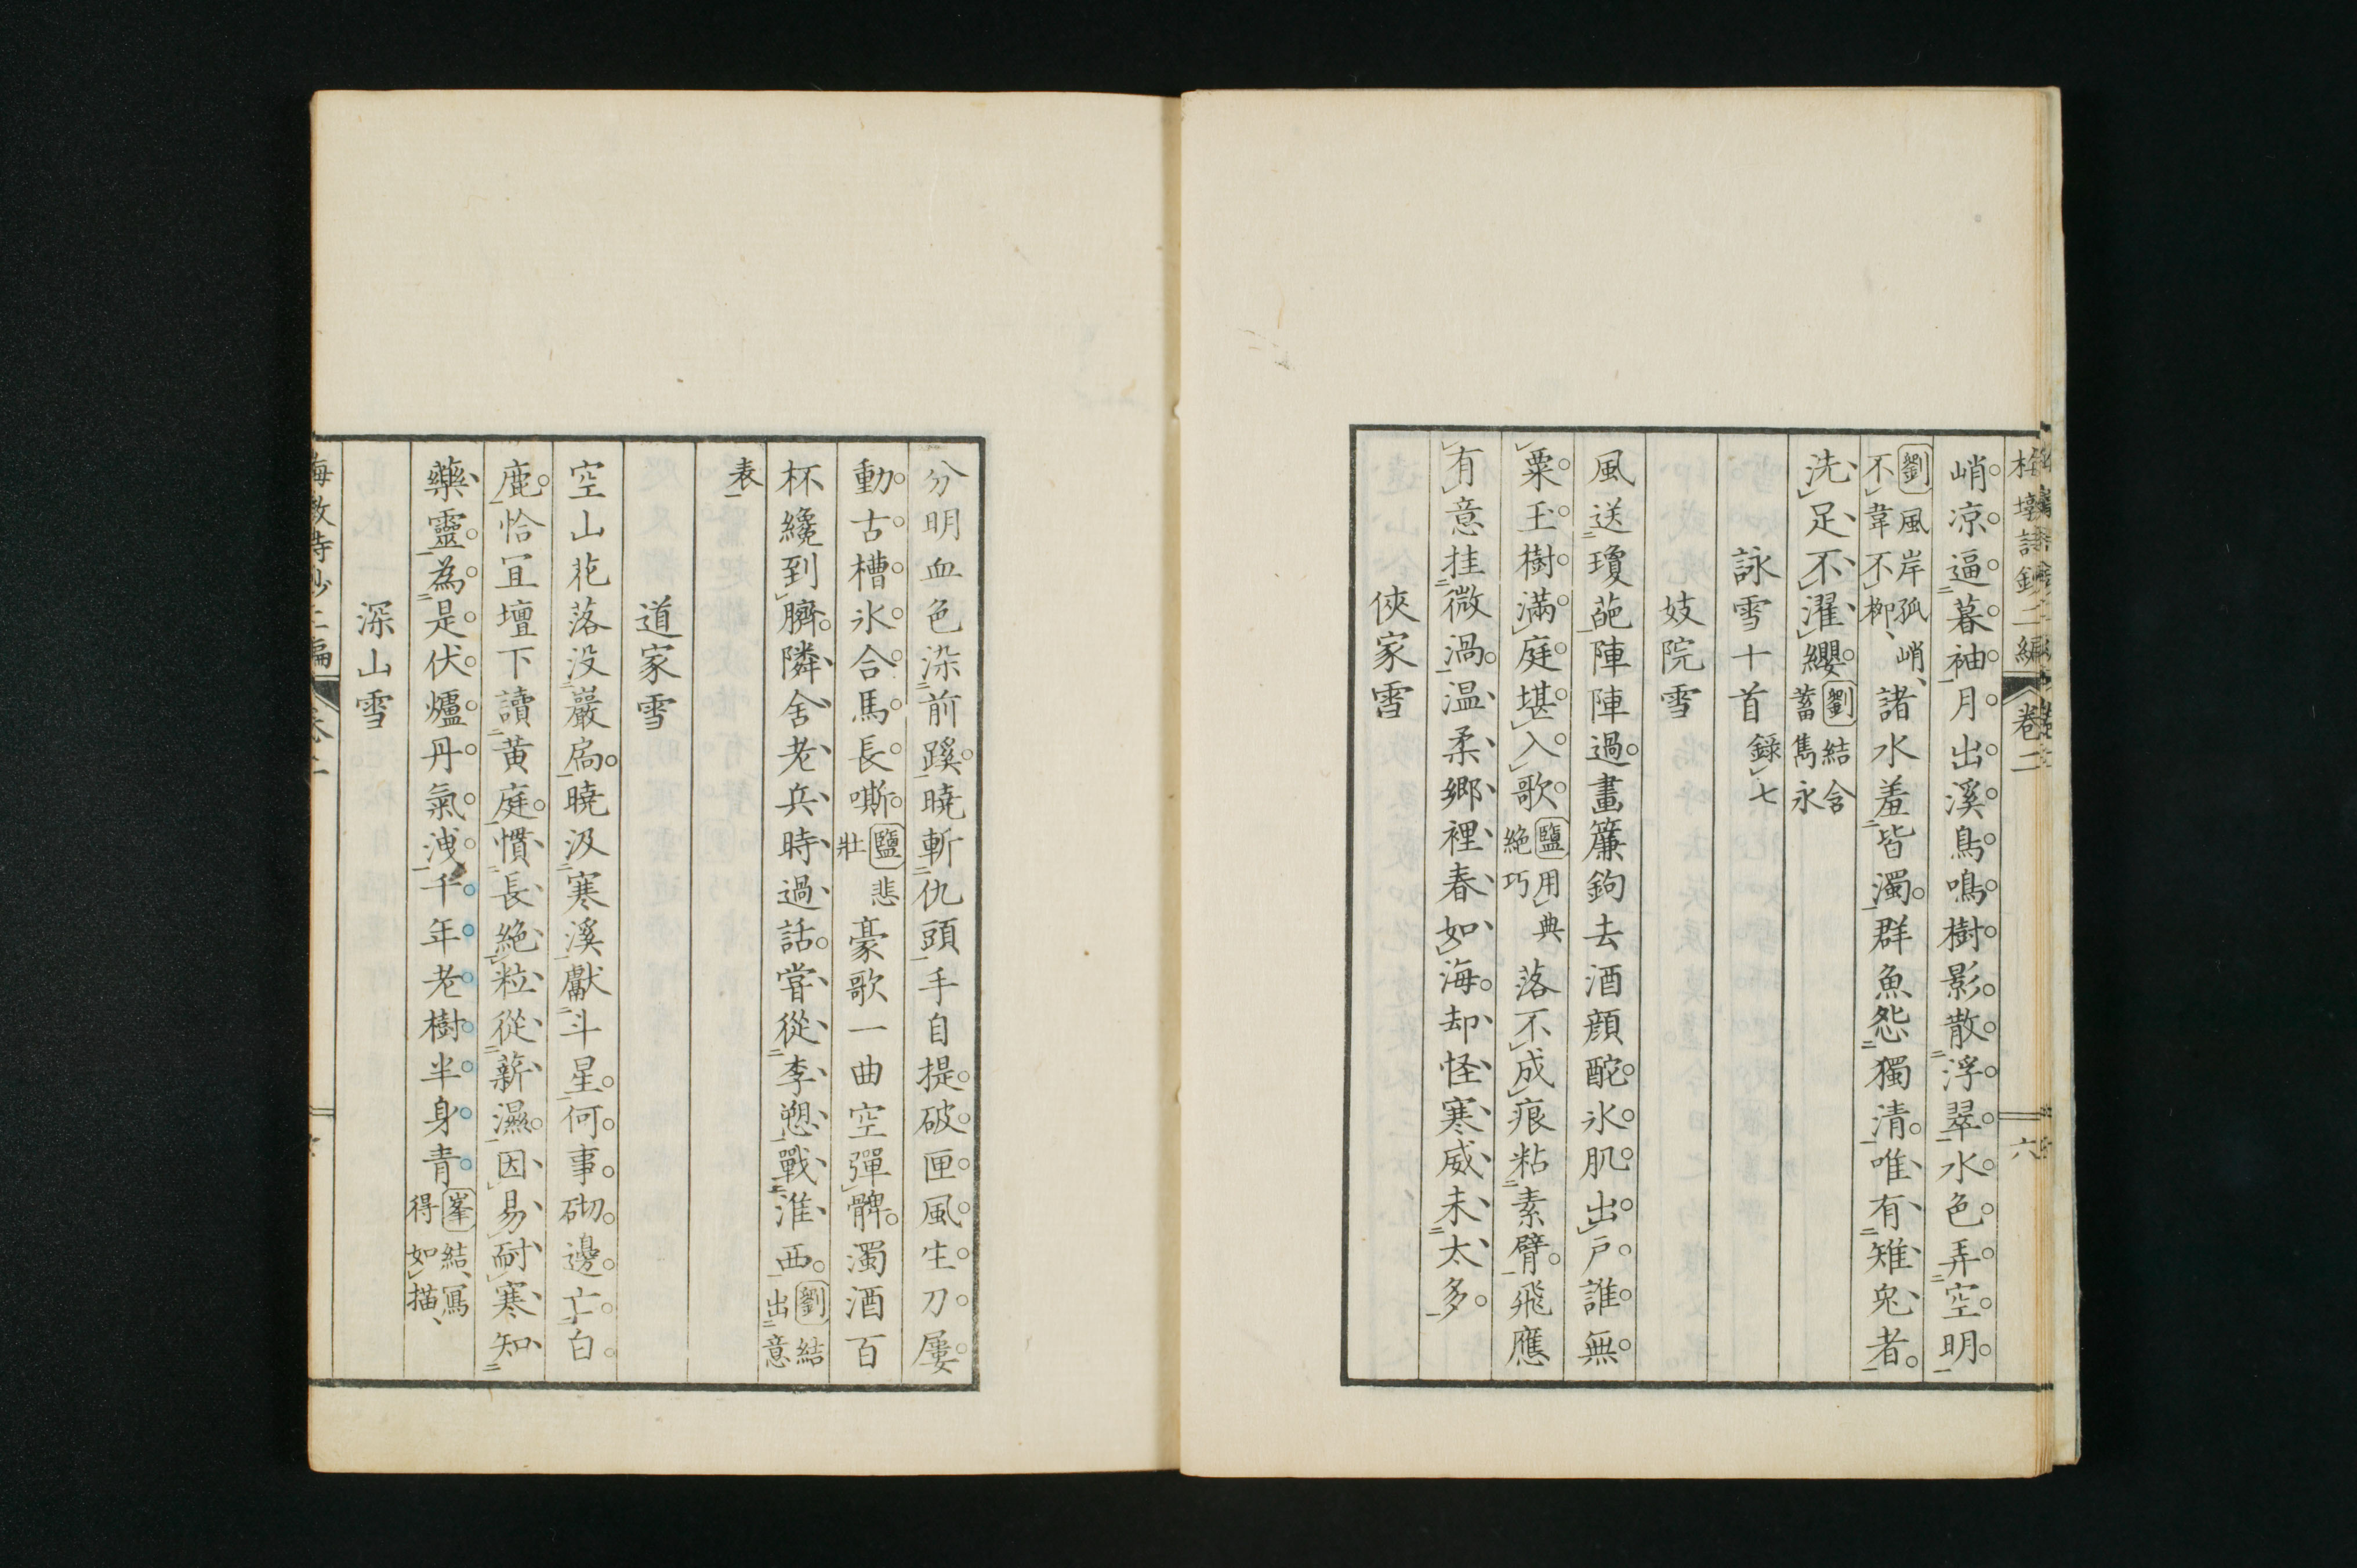 峭凉逼暮袖月出溪鳥鳴樹影散浮翠水色弄空明
劉風岸孤峭、不韋不柳、諸水羞皆濁群魚怨獨清唯有雉兔者
洗足不濯纓劉結含蓄雋永
詠雪十首錄七
妓院雪
風送瓊葩陣陣過畫簾鉤去酒顏酡氷肌出戶誰無
粟玉樹滿庭堪入歌鹽用典絕巧落不成痕粘素臂飛應
有意挂微渦温柔鄉裡春如海却怪寒威未太多
俠家雪
分明血色染前蹊曉斬仇頭手自提破匣風生刀屢
動古槽氷合馬長嘶鹽悲壯豪歌一曲空彈髀濁酒百
杯纔到臍隣舍老兵時過話嘗從李愬戰淮西劉結出意
表
道家雪
空山花落没巖扃曉汲寒溪獻斗星何事砌邊亡白
鹿恰宜壇下讀黃庭慣長絶粒從薪濕因易耐寒知
藥靈為是伏爐丹氣洩千年老樹半身青峯結、寫得如描、
深山雪
卷二
六